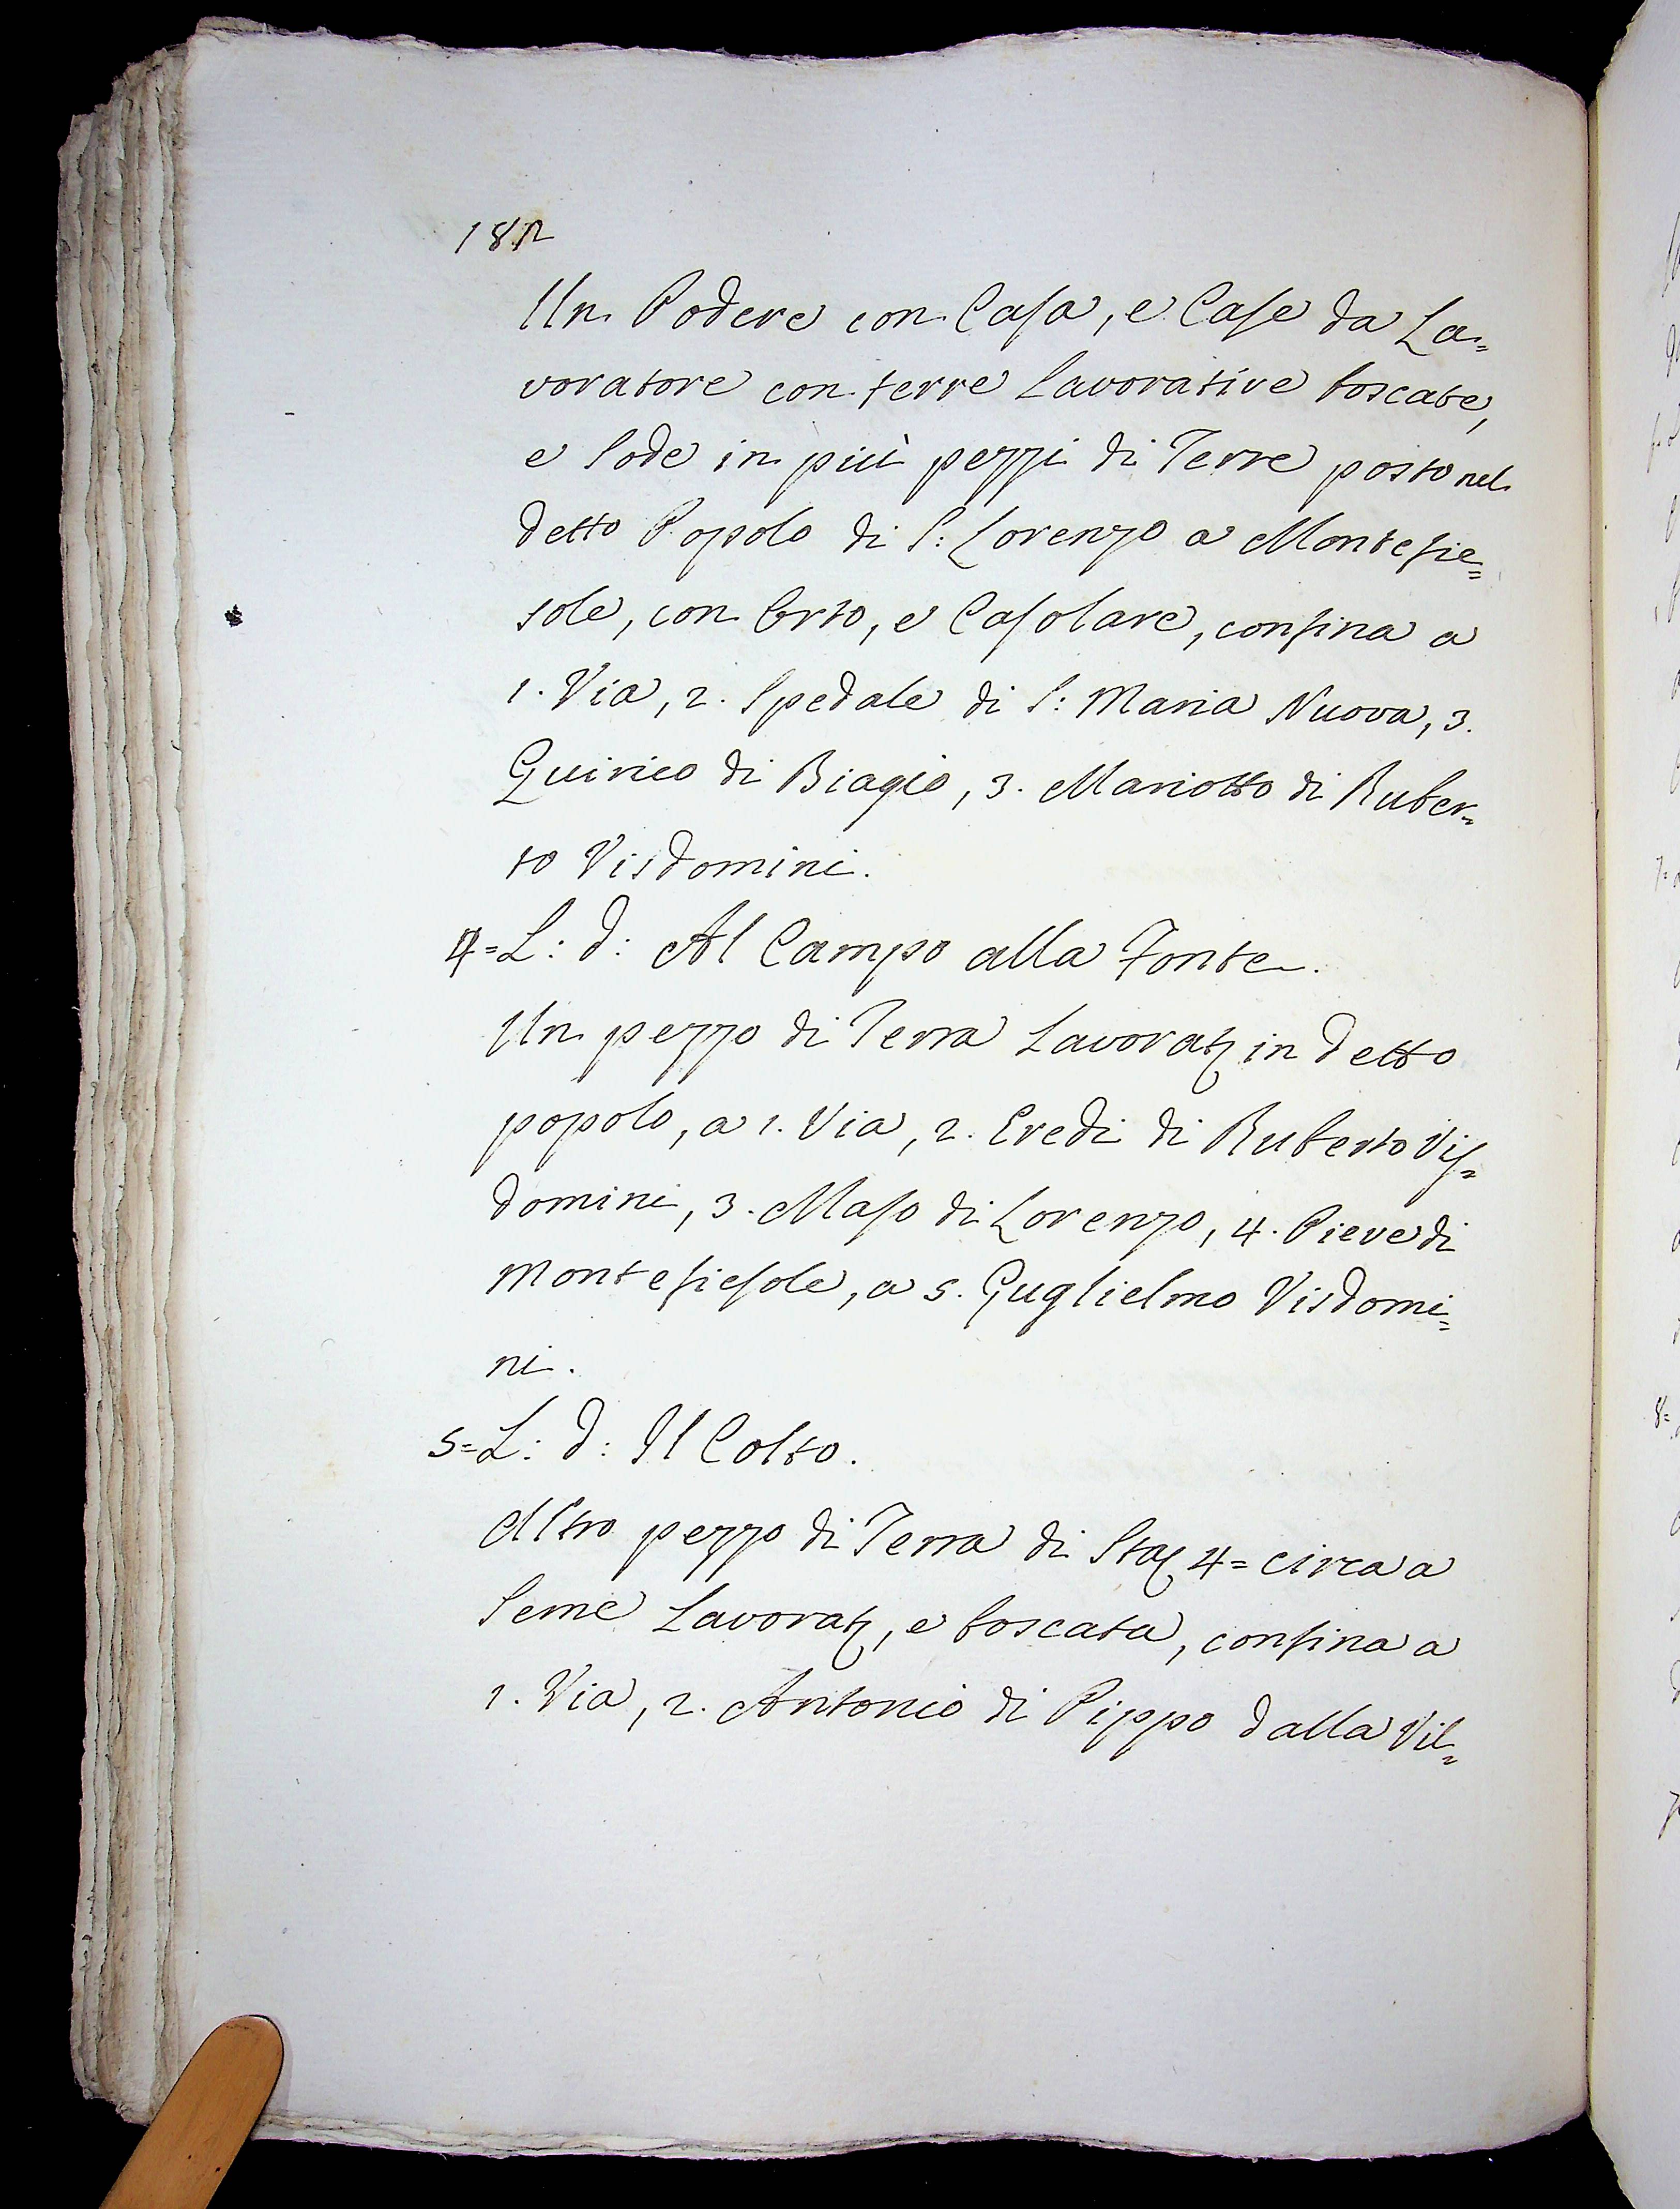 182
Un Podere con Casa, e Case da La=
voratore con terre Lavorative boscate,
e Sode in più pezzi di Terre posto nel
detto Popolo di S: Lorenzo a Montefie=
sole, con Orto, e Casolare, confina a
1. Via, 2. Spedale di S: Maria Nuova, 3.
Quirico di Biagio, 3. Mariotto di Ruber=
to Visdomini.
4= L: d: Al Campo alla Fonte.
Un pezzo di Terra Lavorat in detto
popolo, a 1. Via, 2. Eredi di Ruberto Vis=
domini, 3. Maso di Lorenzo, 4. Pieve di
Montefiesole, a 5. Guglielmo Visdomi=
ni.
5= L: d: Il Colto.
Altro pezzo di Terra di Sta 4= circa a
Seme Lavorat, e boscata, confina a
1. Via, 2. Antonio di Pippo dalla Vil=